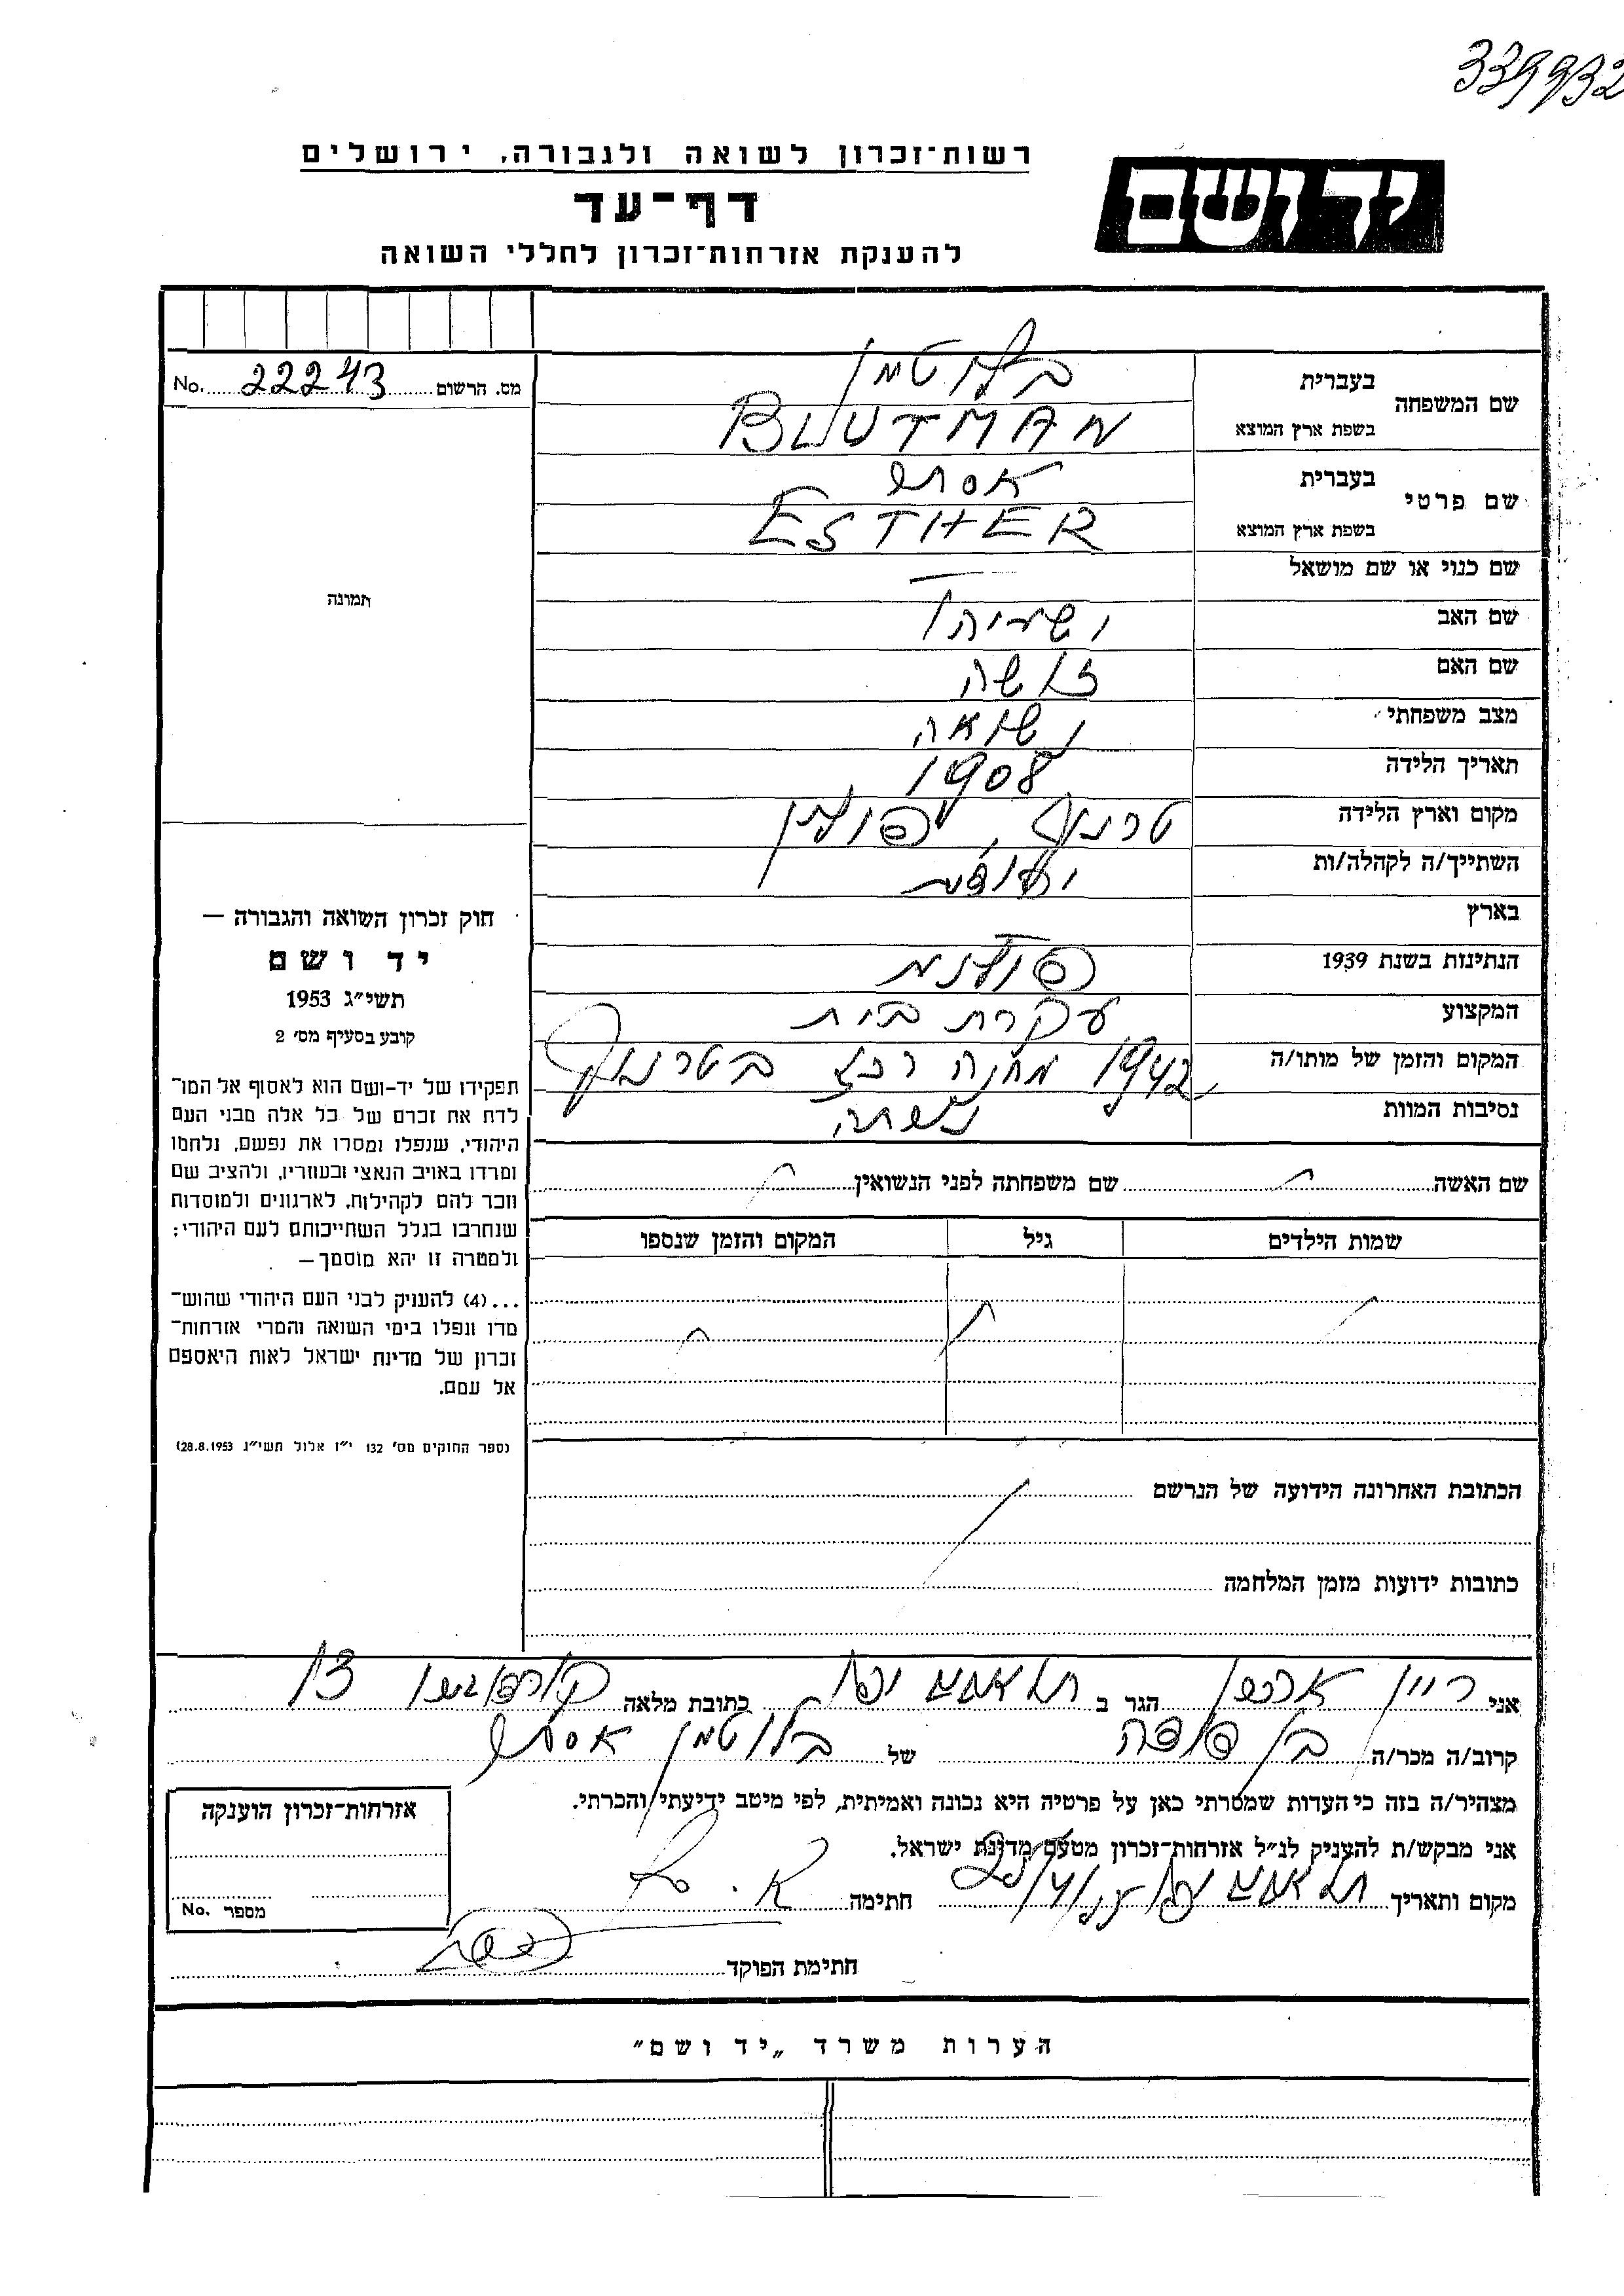 339932
רשות־זכרון לשואה ולגבורה, ירושלים
יד ושם
דף־עד
להענקת אזרחות־זכרון לחללי השואה
מס. הרשום 22243 No.
שם המשפחה בעברית בלוטמן
בשפת ארץ המוצא BLUTMAN
שם פרטי בעברית אסתר
בשפת ארץ המוצא ESTHER
שם כנוי או שם מושאל —
שם האב ישעיהו
שם האם
מצב משפחתי נשואה
תאריך הלידה 1908
מקום וארץ הלידה טרנוב, פולין
השתייך/ה לקהלה/ות
בארץ
הנתינות בשנת 1939 פולנית
המקצוע עקרת בית
המקום והזמן של מותו/ה 1942 מחנה רכוז בטרנוב
נסיבות המוות
תמונה
חוק זכרון השואה והגבורה —
יד ושם
תשי״ג 1953
קובע בסעיף מס׳ 2
תפקידו של יד-ושם הוא לאסוף אל המו־
לדת את זכרם של כל אלה מבני העם
היהודי, שנפלו ומסרו את נפשם, נלחמו
ומרדו באויב הנאצי ובעוזריו, ולהציב שם
וזכר להם לקהילות, לארגונים ולמוסדות
שנחרבו בגלל השתייכותם לעם היהודי;
ולמטרה זו יהא מוסמך—
...(4) להענקת לבני העם היהודי שהוש־
מדו ונפלו בימי השואה והמרי אזרחות־
זכרון של מדינת ישראל לאות היאספם
אל עמם.
(ספר החוקים מס׳ 132 י״ז אלול תשי״ג 28.8.1953)
שם האשה שם משפחתה לפני הנשואין
שמות הילדים גיל המקום והזמן שנספו
הכתובת האחרונה הידועה של הנרשם
כתובות ידועות מזמן המלחמה
אני הגר ב כתובת מלאה 13
קרוב/ה מכר/ה בן דודה של בלוטמן אסתר
מצהיר/ה בזה כי העדות שמסרתי כאן על פרטיה היא נכונה ואמיתית, לפי מיטב ידיעתי והכרתי.
אני מבקש/ת להעניק לנ״ל אזרחות־זכרון מטעם מדינת ישראל.
מקום ותאריך חתימה
חתימת הפוקד
אזרחות־זכרון הוענקה
מספר No.
הערות משרד „יד ושם״